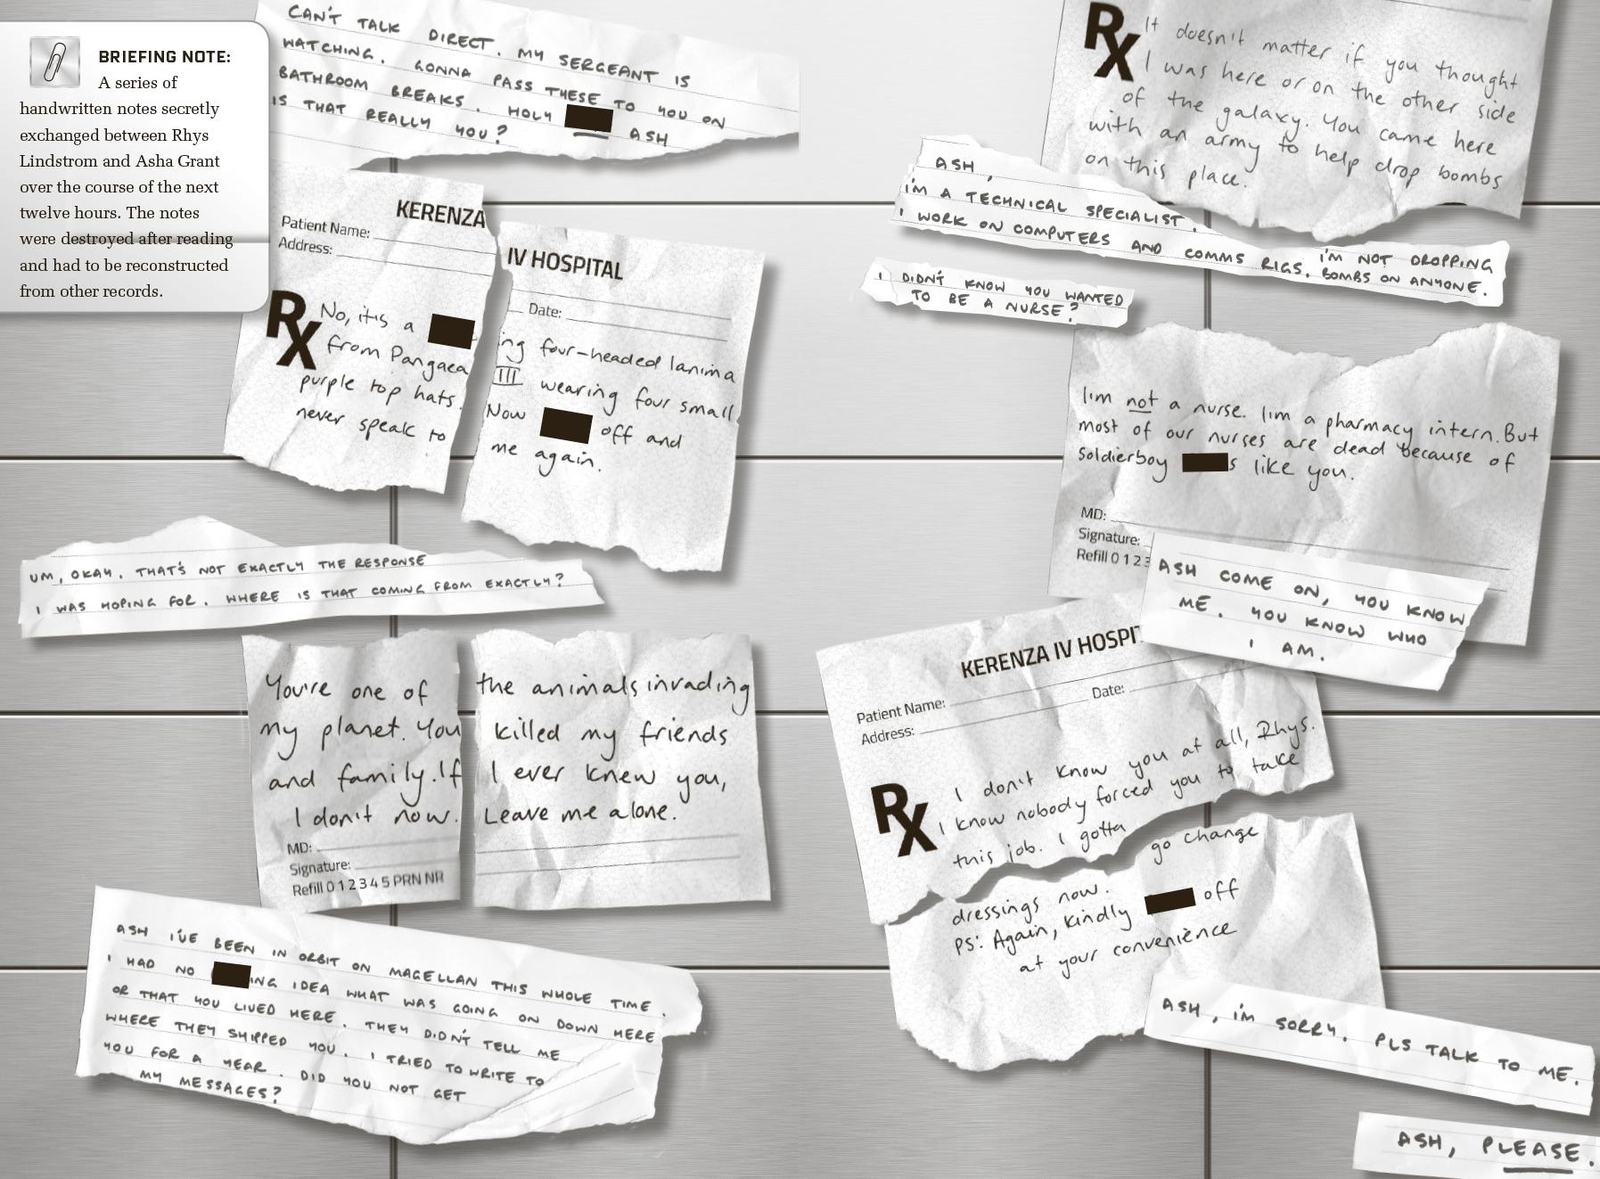 BRIEFING NOTE:
A series of
handwritten notes secretly
exchanged between Rhys
Lindstrom and Asha Grant
over the course of the next
twelve hours. The notes
were destroyed after reading
and had to be reconstructed
from other records.
CAN'T TALK DIRECT. MY SERGEANT IS
WATCHING. GONNA PASS THESE TO YOU ON
BATHROOM BREAKS. HOLY
IS THAT REALLY YOU? ASH
KERENZA IV HOSPITAL
Patient Name: Date:
Address:
RX
No, it's a ing four-headed lanima
from Pangaea III wearing four small
purple top hats. Now off and
never speak to me again.
UM, OKAY. THAT'S NOT EXACTLY THE RESPONSE
I WAS HOPING FOR. WHERE IS THAT COMING FROM EXACTLY?
You're one of the animals invading
my planet. You killed my friends
and family. If I ever knew you,
I don't now. Leave me alone.
MD:
Signature:
Refill 0 1 2 3 4 5 PRN NR
ASH I'VE BEEN IN ORBIT ON MAGELLAN THIS WHOLE TIME.
I HAD NO ING IDEA WHAT WAS GOING ON DOWN HERE
OR THAT YOU LIVED HERE. THEY DIDN'T TELL ME
WHERE THEY SHIPPED YOU. I TRIED TO WRITE TO
YOU FOR A YEAR. DID YOU NOT GET
MY MESSAGES?
RX
It doesn't matter if you thought
I was here or on the other side
of the galaxy. You came here
with an army to help drop bombs
on this place.
ASH,
I'M A TECHNICAL SPECIALIST.
I WORK ON COMPUTERS AND COMMS RIGS. I'M NOT DROPPING
BOMBS ON ANYONE.
I DIDN'T KNOW YOU WANTED
TO BE A NURSE?
I'm not a nurse. I'm a pharmacy intern. But
most of our nurses are dead because of
soldierboy s like you.
MD:
Signature:
Refill 0 1 2 3
ASH COME ON, YOU KNOW
ME. YOU KNOW WHO
I AM.
KERENZA IV HOSPIT
Patient Name: Date:
Address:
RX
I don't know you at all, Rhys.
I know nobody forced you to take
this job. I gotta go change
dressings now.
PS: Again, kindly off
at your convenience
ASH, I'M SORRY. PLS TALK TO ME.
ASH, PLEASE.